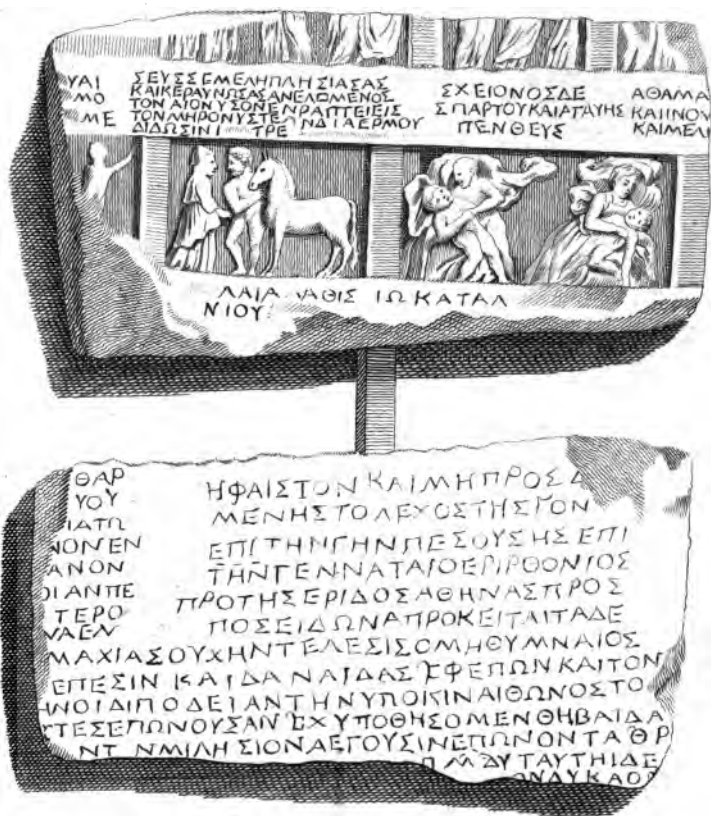 ΥΑΙ
ΜΟ
ΜΕ
ΣΕΥΣΣΕΜΕΛΗΠΛΗΣΙΑΣΑΣ
ΚΑΙΚΕΡΑΥΝΩΣΑΣΑΝΕΛΟΜΕΝΟΣ
ΤΟΝΑΙΟΝΥΣΟΝΕΝΡΑΠΤΕΙΕΙΣ
ΤΟΝΜΗΡΟΝΥΣΤΕΛΝΔΙΑΕΡΜΟΥ
ΔΙΔΩΣΙΝΙ ΤΡΕ
ΣΧΕΙΟΝΟΣΔΕ
ΣΠΑΡΤΟΥΚΑΙΑΓΑΥΗΣ
ΠΕΝΘΕΥΣ
ΑΘΑΜΑ
ΚΑΙΙΝΟΥ
ΚΑΙΜΕΛΙ
ΛΑΙΑ ΛΑΘΙΣ ΙΩ ΚΑΤΑΛ
ΝΙΟΥ
ΘΑΡ
ΥΟΥ
ΙΑΤΩ
ΝΟΝΕΝ
ΑΝΟΝ
ΟΙΑΝΠΕ
ΤΕΡΟ
ΝΑΕΝ
ΗΦΑΙΣΤΟΝ ΚΑΙΜΗΠΡΟΣΔ
ΜΕΝΗΣΤΟΛΕΧΟΣΤΗΣΓΟΝ
ΕΠΙΤΗΝΓΗΝΠΕΣΟΥΣΗΣΕΠΙ
ΤΗΝΓΕΝΝΑΤΑΙΟΕΡΙΡΘΟΝΙΟΣ
ΠΡΟΤΗΣΕΡΙΔΟΣΑΘΗΝΑΣΠΡΟΣ
ΠΟΣΕΙΔΩΝΑΠΡΟΚΕΙΤΑΙΤΑΔΕ
ΜΑΧΙΑΣΟΥΧΗΝΤΕΛΕΣΙΣΟΜΗΘΥΜΝΑΙΟΣ
ΕΠΕΣΙΝ ΚΑΙΔΑΝΑΙΔΑΣ ΣΦΕΠΩΝ ΚΑΙΤΟΝ
ΗΝΟΙΔΙΠΟΔΕΙΑΝΤΗΝΥΠΟΚΙΝΑΙΘΩΝΟΣΤΟ
ΤΕΣΕΠΩΝΟΥΣΑΝ ΣΧ ΥΠΟΘΗΣΟΜΕΝΘΗΒΑΙΔΑ
ΝΤ ΝΜΙΛΗΣΙΟΝΛΕΓΟΥΣΙΝΕΠΩΝΟΝΤΑ ΘΡ
ΔΥΤΑΥΤΗΙΔΕ